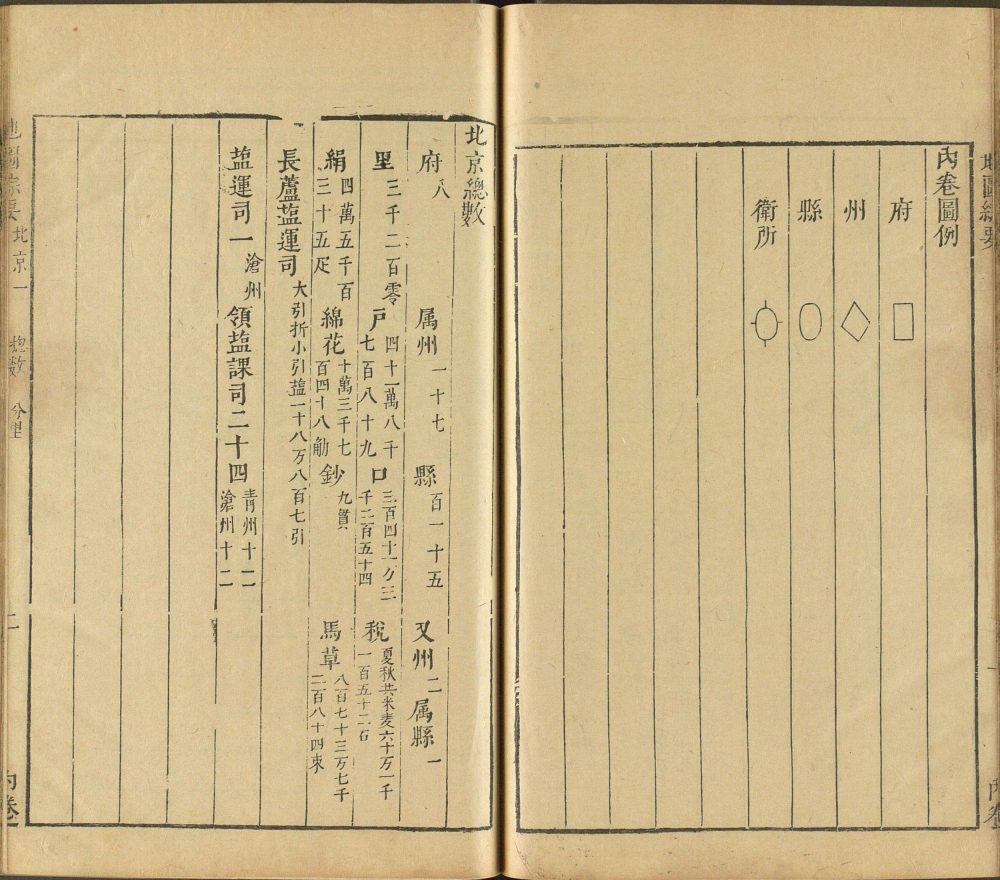 地圖綜要
内卷
内卷圖例
府
州
縣
衛所
北京總數
府八 属州一十七 縣百一十五 又州二 属縣一
里三千二百零 戸四十一萬八千七百八十九 口三百四十一万三千二百五十四 稅夏秋共米麦六十万一千一百五十二石
絹四萬五千百三十五疋 綿花十萬三千七百四十八觔 鈔九貫 馬草八百七十三万七千二百八十四束
長蘆塩運司大引折小引塩一十八万八百七引
塩運司一滄州 領塩課司二十四青州十二滄州十二
地圖綜要 北京一 總數 分里 二 内卷